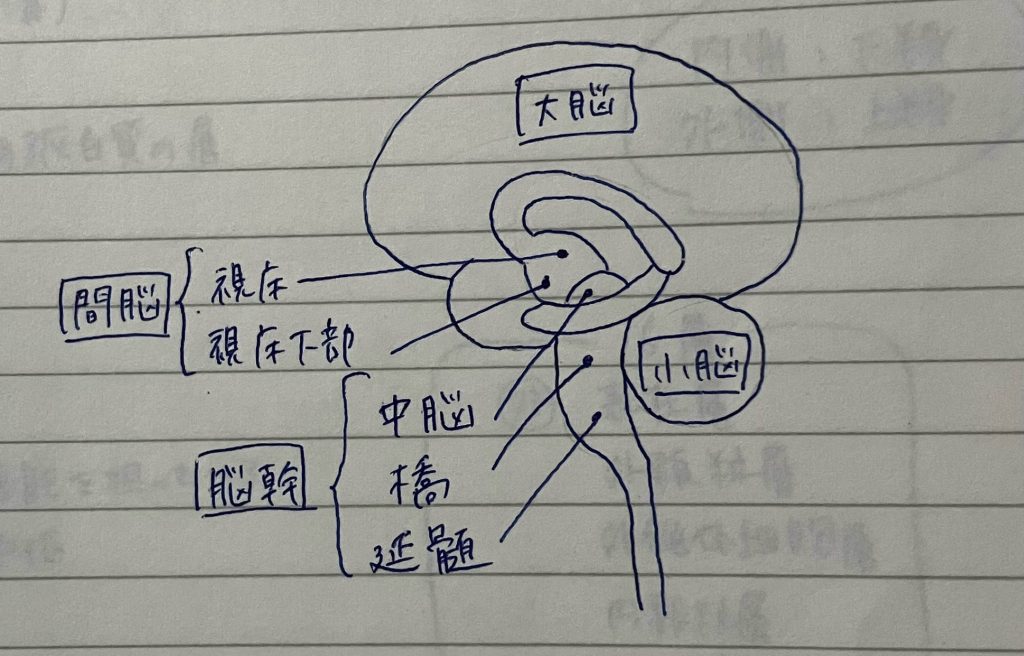 大脳
間脳
視床
視床下部
小脳
脳幹
中脳
橋
延髄